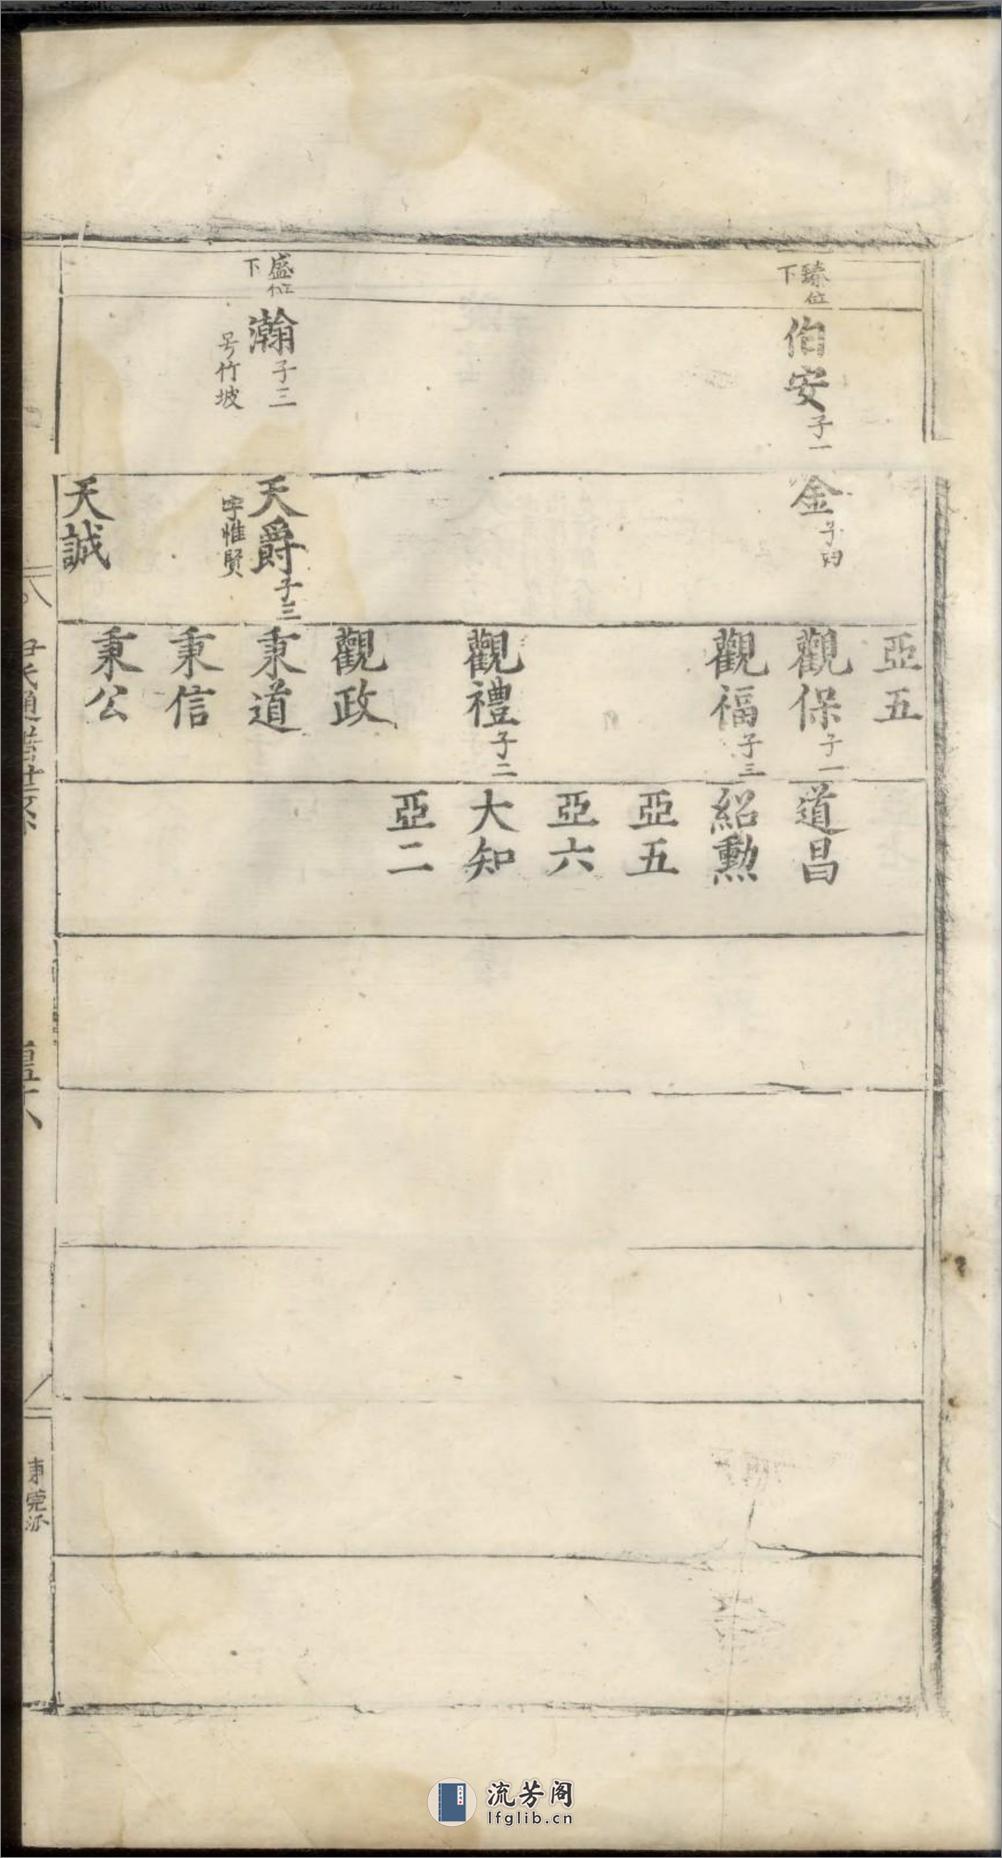 臻位下
伯安 子一
盛位下
瀚 子三
号竹坡
金 子四
天爵 子三
字惟賢
天誠
亞五
觀保 子一
觀福 子三
觀禮 子二
觀政
秉道
秉信
秉公
道昌
紹勲
亞五
亞六
大知
亞二
東莞派
流芳阁
lfglib.cn